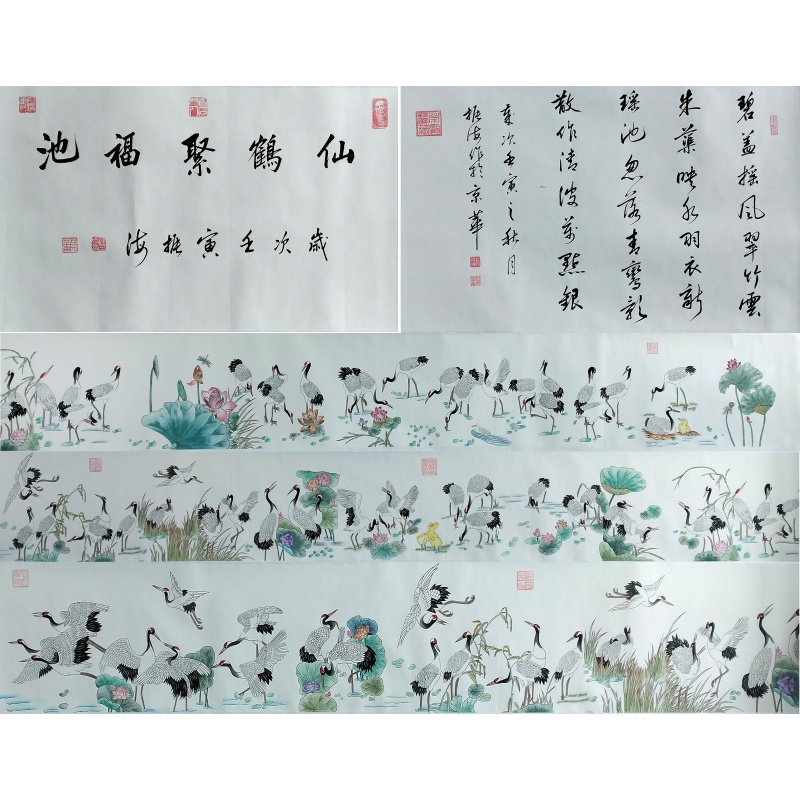 仙鶴聚福池
歲次壬寅振海
碧蓋搖風翠竹雲
朱蕖映水羽衣新
瑤池忽落青鸞影
散作清波萬點銀
歲次壬寅之秋月
振海作於京華